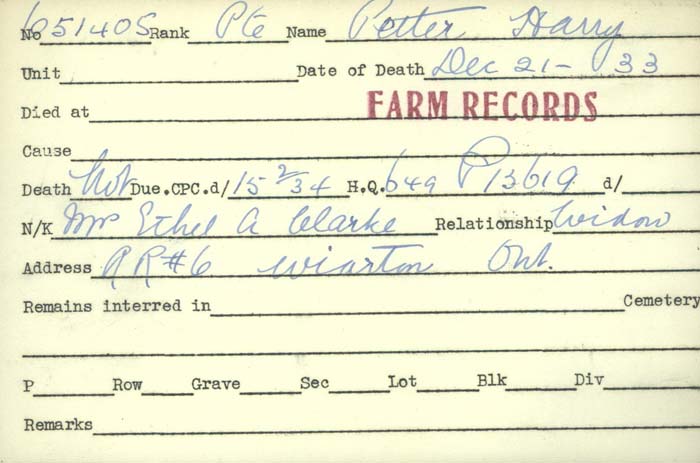 No 651405 Rank Pte Name Petter Harry
Unit Date of Death Dec 21 - 33
Died at FARM RECORDS
Cause
Death Not Due.CPC.d/ 15 2/34 H.Q. 649 P 13619 d/
N/K Mrs Ethel A Clarke Relationship Widow
Address RR#6 Wiarton Ont.
Remains interred in Cemetery
P Row Grave Sec Lot Blk Div
Remarks